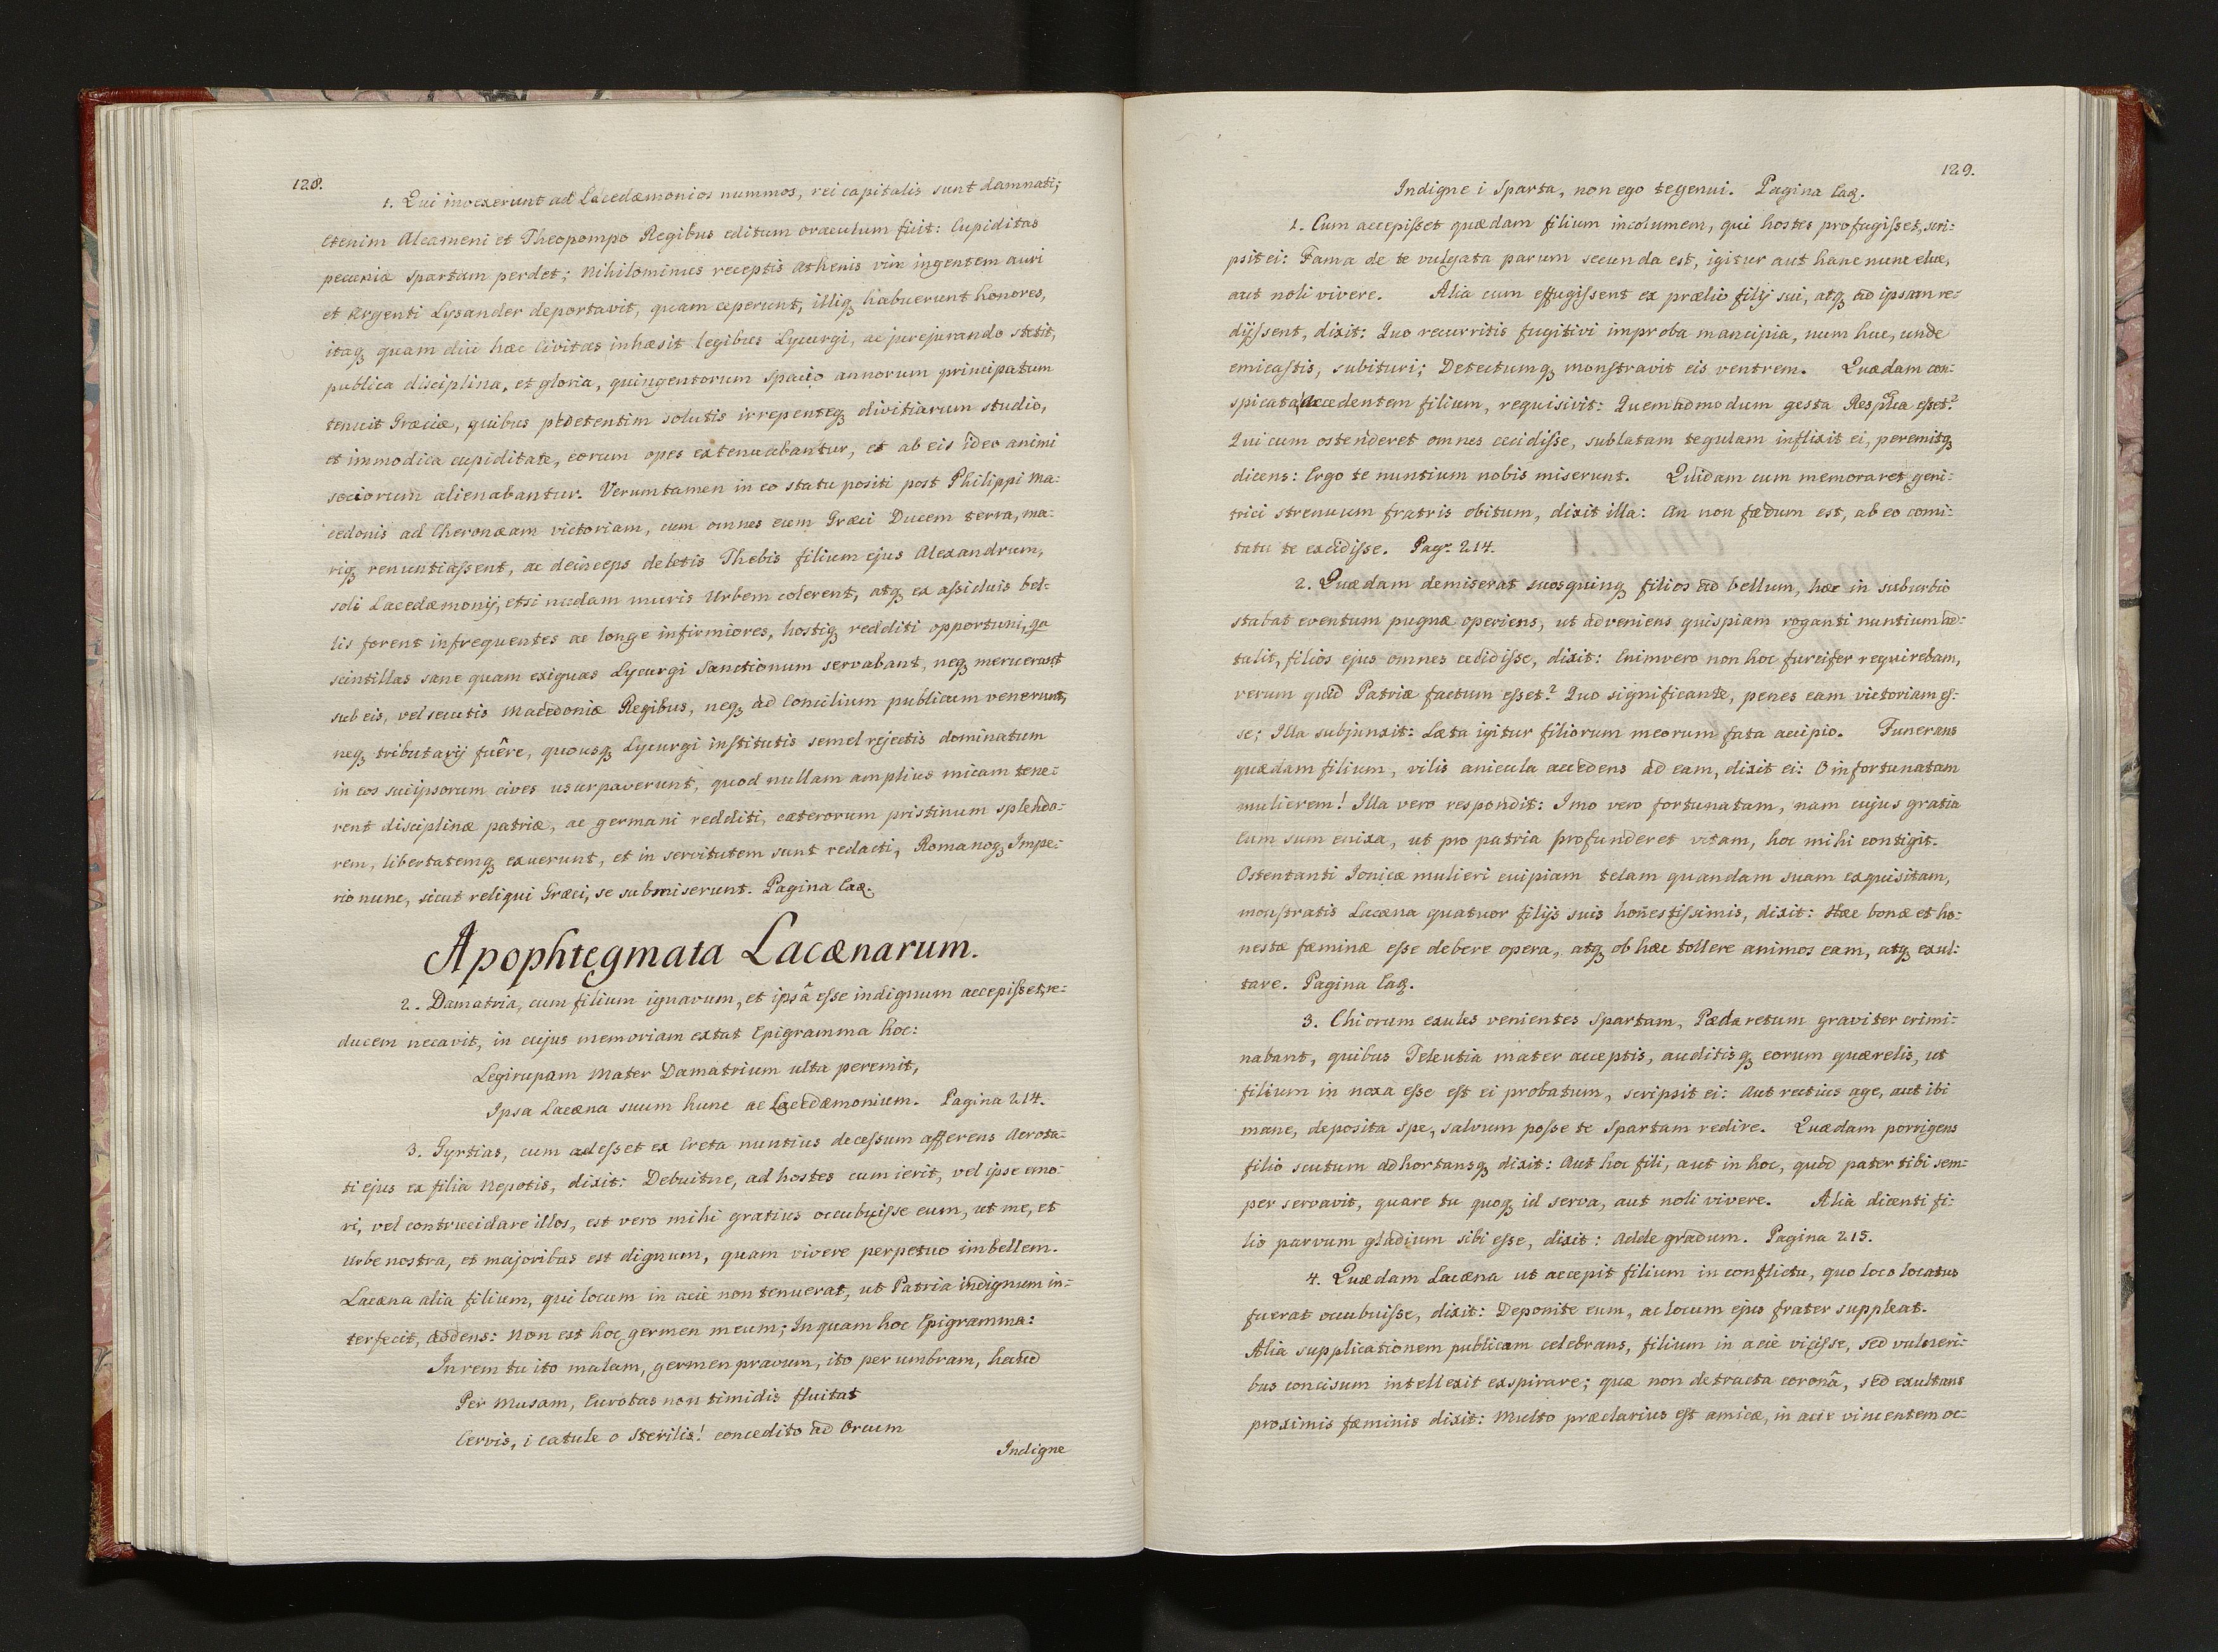 128.
1. Qui invexerunt ad Lacedæmonios nummos, rei capitalis sunt damnati;
etenim Alcameni et Theopompo Regibus editum oraculum fuit: Cupiditas
pecuniæ Spartam perdet; Nihilominus receptis Athenis vim ingentem auri
et Argenti Lysander deportavit, quam ceperunt, illiq; habuerunt honores,
itaq; quam diu hæc Civitas inhæsit legibus Lycurgi, ac jurejurando stetit,
publica disciplina, et gloria, quingentorum spacio annorum principatum
tenuit Græciæ, quibus pedetentim solutis irrepenteq; divitiarum studio,
et immodica cupiditate, eorum opes extenuabantur, et ab eis ideo animi
sociorum alienabantur. Verumtamen in eo statu positi post Philippi Ma:
cedonis ad Cheronæam victoriam, cum omnes eum Græci Ducem terra, ma:
riq; renuntiassent, ac deinceps deletis Thebis filium ejus Alexandrum,
soli Lacedæmonij, etsi nudam muris Urbem colerent, atq; ex assiduis bel:
lis forent infrequentes ac longe infirmiores, hostiq; redditi opportuni, qa
scintillas sane quam exiguas Lycurgi Sanctionum servabant, neq; meruerunt
sub eis, vel secutis Macedoniæ Regibus, neq; ad Concilium publicum venerunt,
neq; tributarij fuêre, quousq; Lycurgi institutis semel rejectis dominatum
in eos suiipsorum cives usurpaverunt, quod nullam amplius micam tene:
rent disciplinæ patriæ, ac germani redditi, cæterorum pristinum splendo:
rem, libertatemq; exuerunt, et in servitutem sunt redacti, Romanoq; Impe:
rio nunc, sicut reliqui Græci, se submiserunt. Pagina Eaq.
Apophtegmata Lacænarum.
2. Damatria, cum filium ignavum, et ipsâ esse indignum accepisset, re:
ducem necavit, in cujus memoriam extat Epigramma hoc:
Legirupam Mater Damatrium ulta peremit,
Ipsa Lacæna suum hunc ac Lacedæmonium. Pagina 214.
3. Gyrtias, cum adesset ex Creta nuntius decessum afferens Acrota:
ti ejus ex filia Nepotis, dixit: Debuitne, ad hostes cum ierit, vel ipse emo:
ri, vel contrucidare illos, est vero mihi gratius occubuisse eum, ut me, et
Urbe nostra, et majoribus est dignum, quam vivere perpetuo imbellem.
Lacæna alia filium, qui locum in acie non tenuerat, ut Patria indignum in:
terfecit, addens: Non est hoc germen meum; In quam hoc Epigramma:
In rem tu ito malam, germen pravum, ito per umbram, haud
Per Musam, Eurotas non timidis fluitat
Cervis, i catule o Sterilis! concedito ad Orcum
Indigne
129.
Indigne i Sparta, non ego te genui. Pagina Eaq.
1. Cum accepisset quædam filium incolumem, qui hostes profugisset, scri:
psit ei: Fama de te vulgata parum secunda est, igitur aut hanc nunc elue,
aut noli vivere. Alia cum effugissent ex prælio filij sui, atq; ad ipsam re:
dijssent, dixit: Quo recurritis fugitivi improba mancipia, num huc, unde
emicastis, subituri; Detectumq; monstravit eis ventrem. Quædam con:
spicata accedentem filium, requisivit: Quemadmodum gesta Resplica esset?
Qui cum ostenderet omnes cecidisse, sublatam tegulam inflixit ei, peremitq;
dicens: Ergo te nuntium nobis miserunt. Quidam cum memoraret geni:
trici strenuum fratris obitum, dixit illa: An non fædum est, ab eo comi:
tatu te excidisse. Pag. 214.
2. Quædam demiserat suos quinq; filios ad bellum, hæc in suburbio
stabat eventum pugnæ operiens, ut adveniens quispiam roganti nuntium at:
tulit, filios ejus omnes cecidisse, dixit: Enimvero non hoc furcifer requirebam,
verum quid Patriæ factum esset? Quo significante, penes eam victoriam es:
se; Illa subjunxit: Læta igitur filiorum meorum fata accipio. Funerans
quædam filium, vilis anicula accedens ad eam, dixit ei: O infortunatam
mulierem! Illa vero respondit: Imo vero fortunatam, nam cujus gratia
Eum sum enixa, ut pro patria profunderet vitam, hoc mihi contigit.
Ostentanti Ionicæ mulieri cuipiam telam quandam suam exquisitam,
monstratis Lacæna quatuor filijs suis honestissimis, dixit: Hæc bonæ et ho:
nestæ fæminæ esse debere opera, atq; ob hæc tollere animos eam, atq; exul:
tare. Pagina Eaq.
3. Chiorum exules venientes Spartam, Pædaretum graviter crimi:
nabant, quibus Teleutia mater acceptis, auditisq; eorum quærelis, ut
filium in noxa esse est ei probatum, scripsit ei: Aut rectius age, aut ibi
mane, deposita spe, salvum posse te Spartam redire. Quædam porrigens
filio scutum adhortansq; dixit: Aut hoc fili, aut in hoc, quod pater tibi sem:
per servavit, quare tu quoq; id serva, aut noli vivere. Alia dicenti fi:
lio parvum gladium sibi esse, dixit: Adde gradum. Pagina 215.
4. Quædam Lacæna ut accepit filium in conflictu, quo loco locatus
fuerat occubuisse, dixit: Deponite eum, ac locum ejus frater suppleat.
Alia supplicationem publicam celebrans, filium in acie vicisse, sed vulneri:
bus concisum intellexit exspirare; quæ non detracta coronâ, sed exultans
proximis fæminis dixit: Multo præclarius est amicæ, in acie vincentem oc: